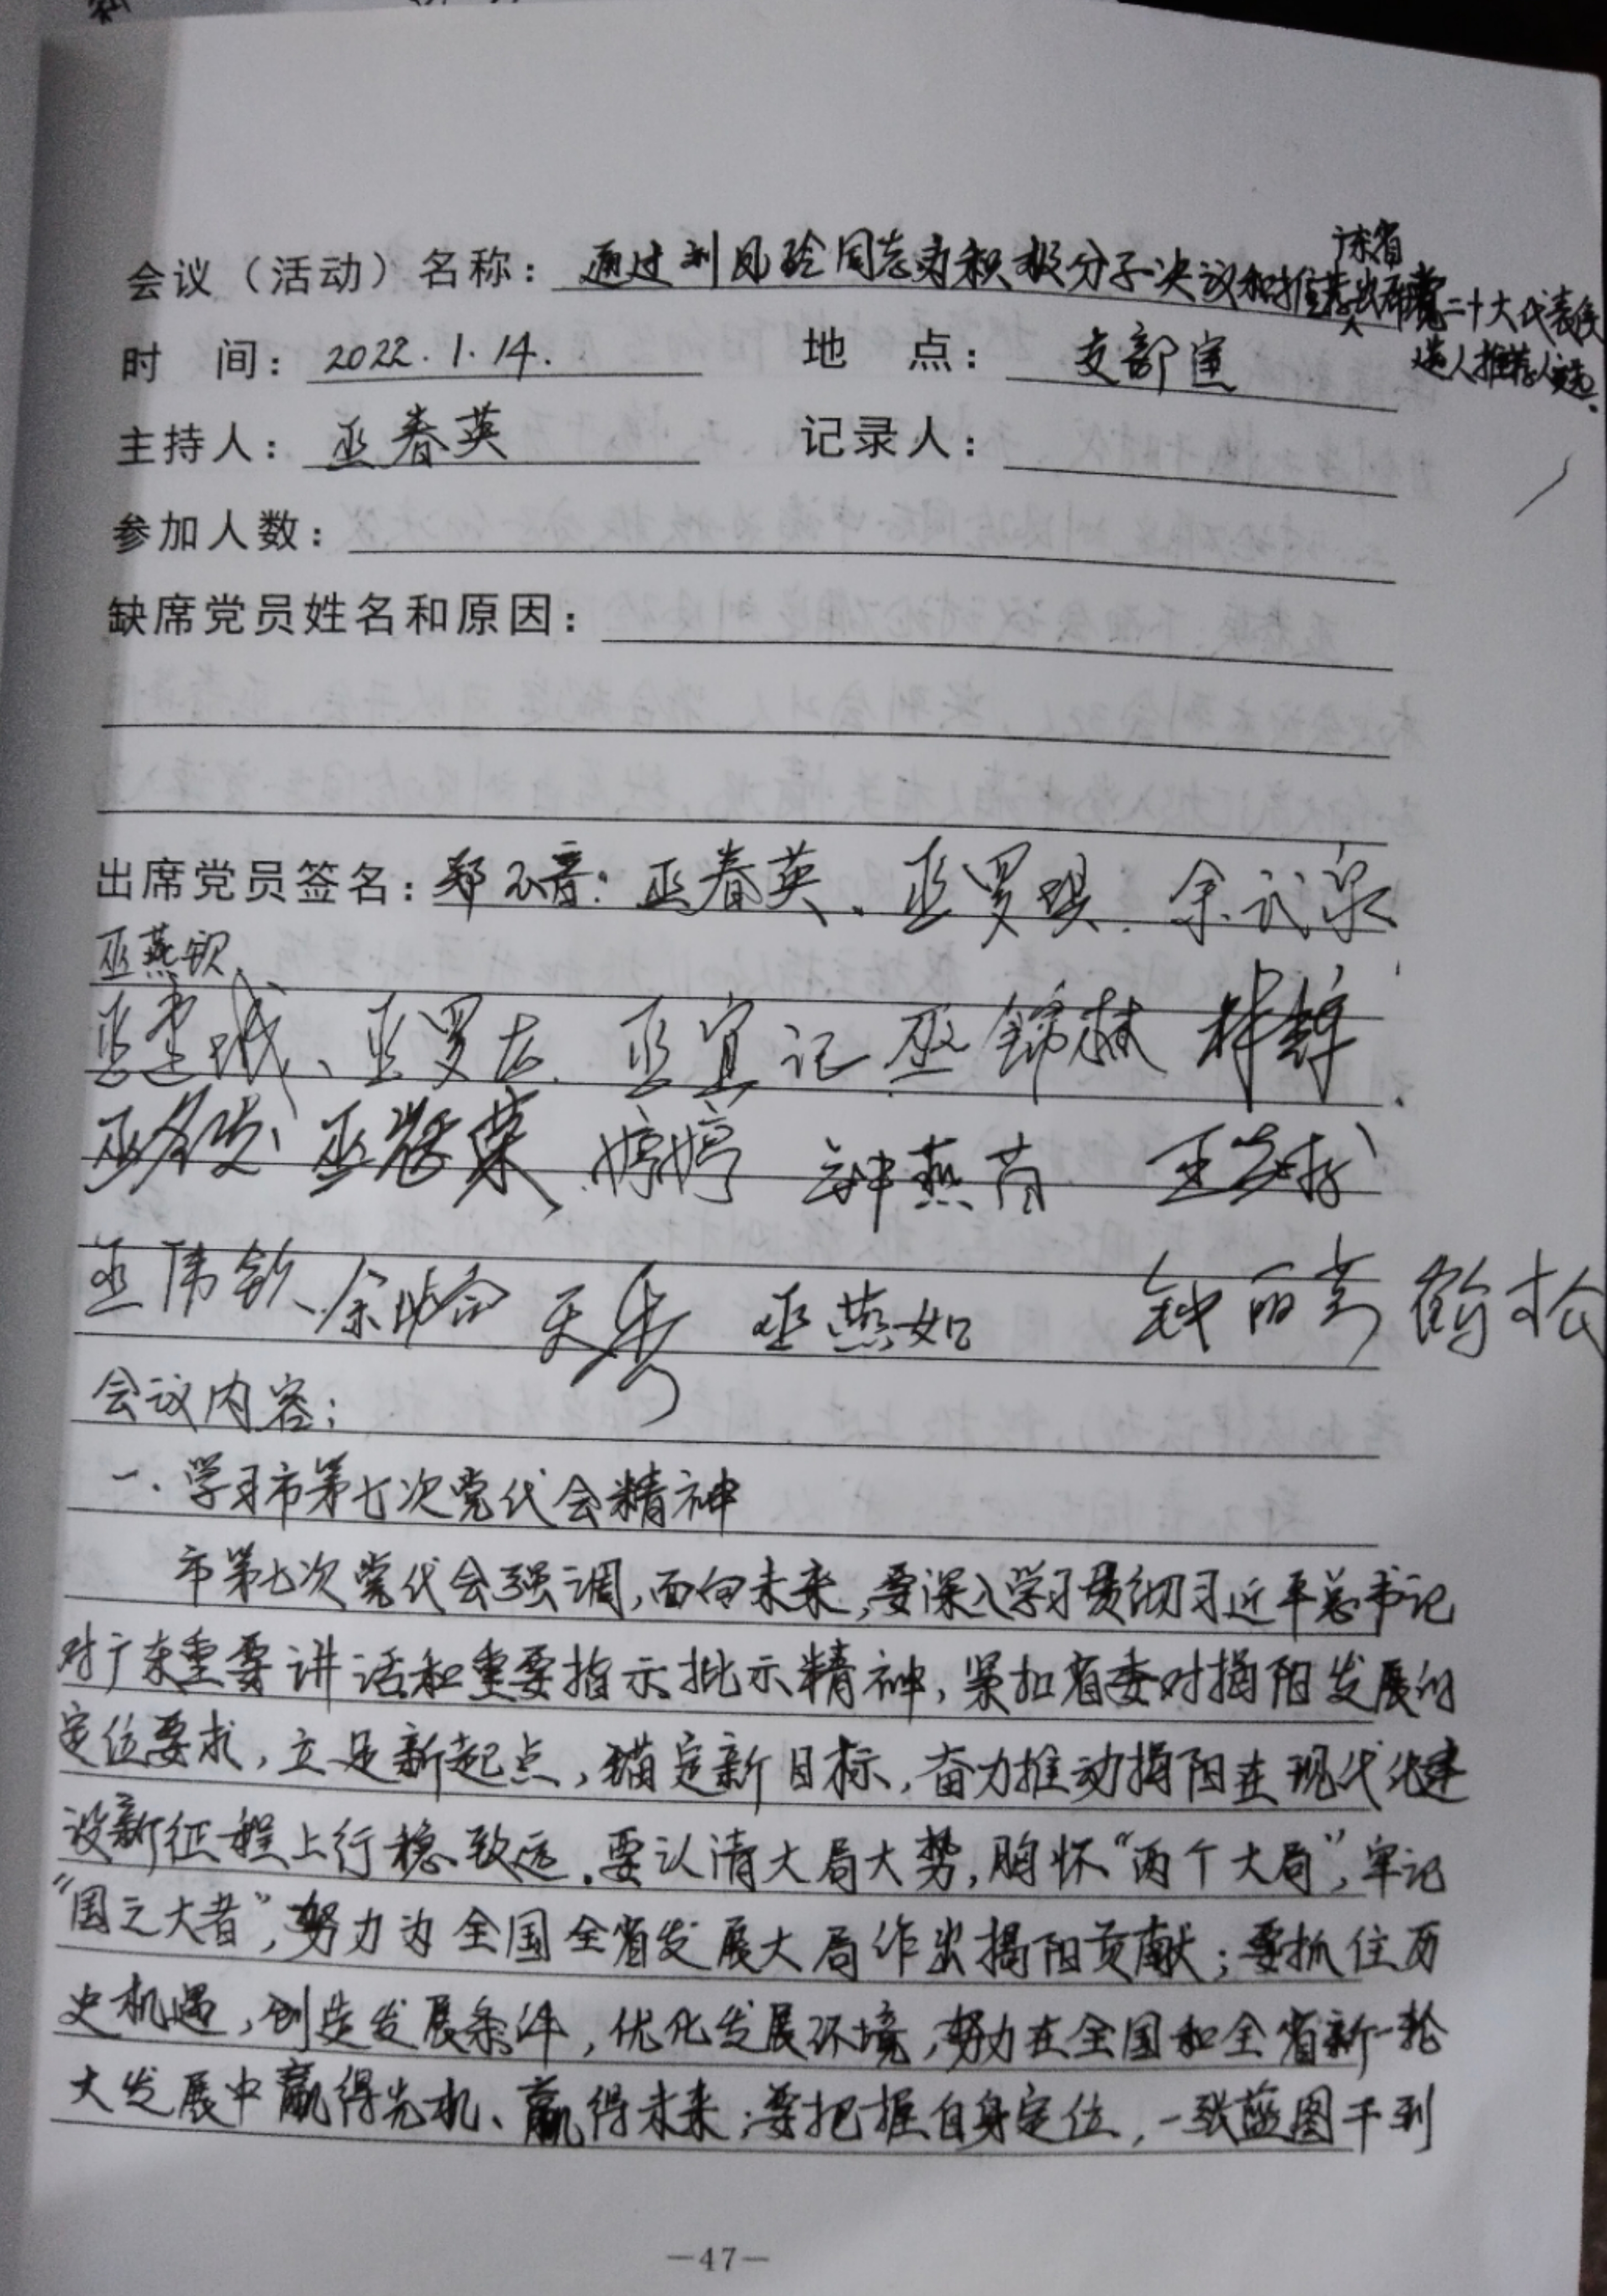 广东省
会议（活动）名称：通过刘凤玲同志为积极分子决议和推荐出席党二十大代表候
选人推荐人选.
时 间：2022.1.14. 地 点：支部室
主持人：巫春英 记录人：
参加人数：
缺席党员姓名和原因：
出席党员签名：郑不音. 巫春英、巫罗琪. 余武泉
巫燕钦
巫建城、巫罗 巫宜记 巫锦林
巫 巫 荣 婷婷 钟燕芮
巫伟钦 余 天秀 巫燕如 钟丽芳 鹤松
会议内容：
一、学习市第七次党代会精神
市第七次党代会强调,面向未来,要深入学习贯彻习近平总书记
对广东重要讲话和重要指示批示精神,紧扣省委对揭阳发展的
定位要求,立足新起点,锚定新目标,奋力推动揭阳在现代化建
设新征程上行稳致远.要认清大局大势,胸怀“两个大局”,牢记
“国之大者”,努力为全国全省发展大局作出揭阳贡献;要抓住历
史机遇,创造发展条件,优化发展环境,努力在全国和全省新一轮
大发展中赢得先机、赢得未来;要把握自身定位,一张蓝图干到
—47—